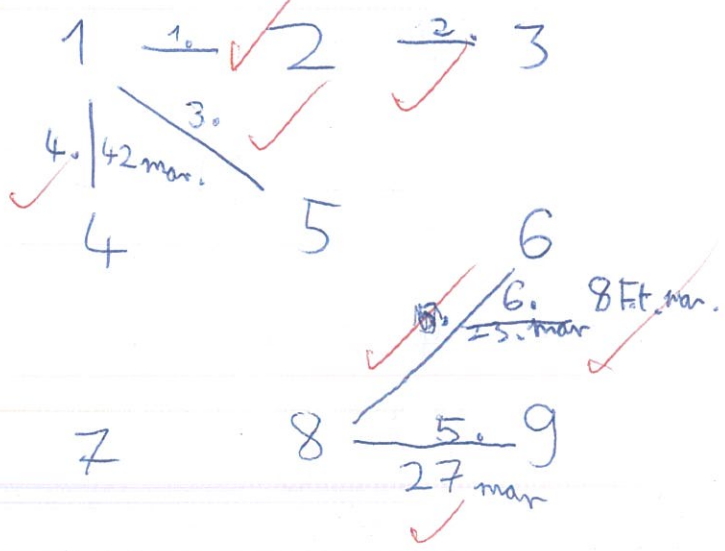 1 1. 2 2. 3
3.
4. 42 mar.
4 5
6
6. 8 Ft. mar.
mar
7 8 5. 9
27 mar